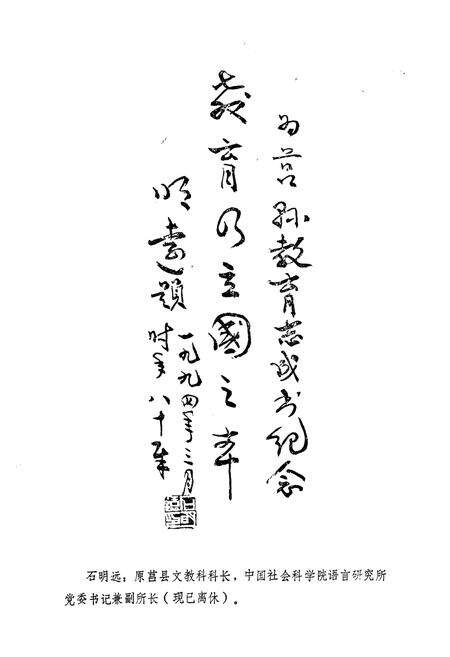 为莒县教育志成书纪念
教育乃立國之本
明遠題
一九九四年三月
时年八十岁
石明远：原莒县文教科科长，中国社会科学院语言研究所
党委书记兼副所长（现已离休）。